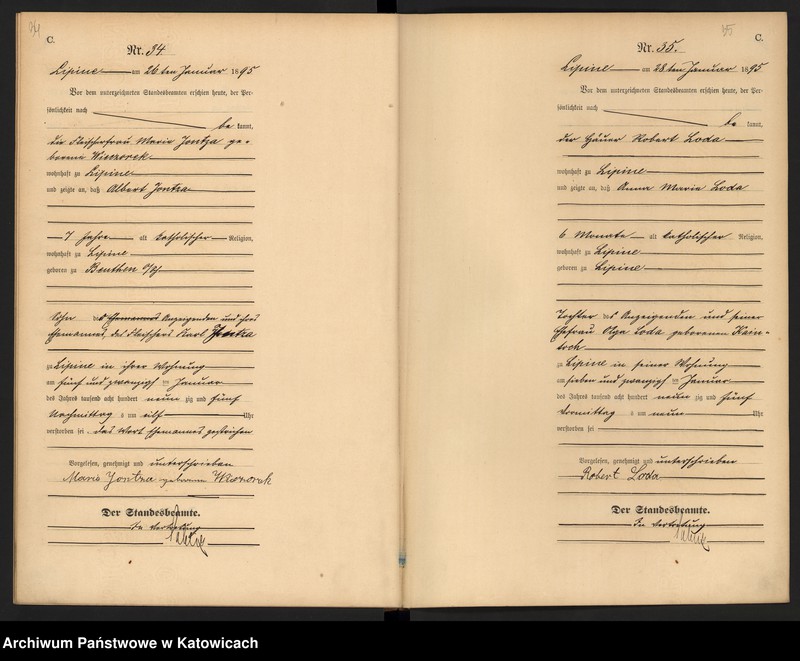 34
C.
Nr. 34
Lipine am 26ten Januar 1895
Vor dem unterzeichneten Standesbeamten erschien heute, der Per-
sönlichkeit nach
be kannt,
die Fleischerfrau Maria Jontza ge-
borene Wieczorek
wohnhaft zu Lipine
und zeigte an, daß Albert Jontza
7 Jahre alt katholischer Religion,
wohnhaft zu Lipine
geboren zu Beuthen O/S
Sohn des Ehemannes Anzeigenden und ihres
Ehemannes, des Fleischers Karl Jontza
zu Lipine in ihrer Wohnung
am fünf und zwanzigsten Januar
des Jahres tausend acht hundert neun zig und fünf
Nachmittag s um elf Uhr
verstorben sei. Das Wort Ehemannes gestrichen
Vorgelesen, genehmigt und unterschrieben
Maria Jontza geborene Wieczorek
Der Standesbeamte.
In Vertretung
35
C.
Nr. 35.
Lipine am 28ten Januar 1895
Vor dem unterzeichneten Standesbeamten erschien heute, der Per-
sönlichkeit nach
be kannt,
der Häuer Robert Loda
wohnhaft zu Lipine
und zeigte an, daß Anna Maria Loda
6 Monate alt katholischer Religion,
wohnhaft zu Lipine
geboren zu Lipine
Tochter des Anzeigenden und seiner
Ehefrau Olga Loda geborenen
zu Lipine in seiner Wohnung
am sieben und zwanzigsten Januar
des Jahres tausend acht hundert neun zig und fünf
Vormittag s um neun Uhr
verstorben sei
Vorgelesen, genehmigt und unterschrieben
Robert Loda
Der Standesbeamte.
In Vertretung
Archiwum Państwowe w Katowicach